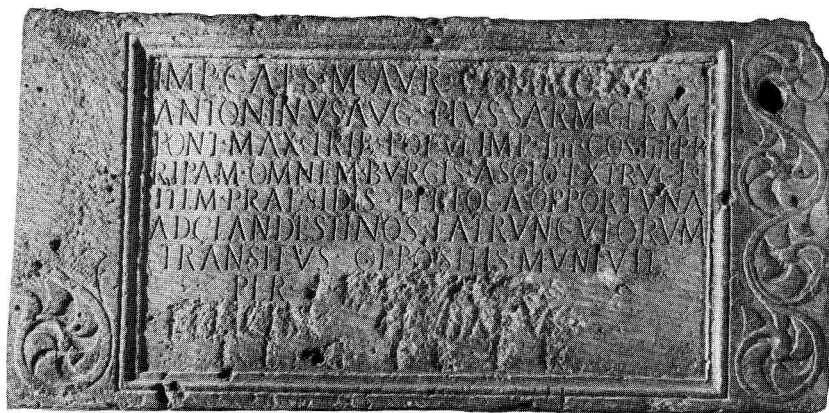 IMP·CAES·M·AVR·COMMODVS
ANTONINVS·AVG·PIVS·SARM·GERM
PONT·MAX·TRIB·POT·VI·IMP·IIII·COS·IIII·P·P
RIPAM·OMNEM·BVRGIS·A SOLO·EXTRVCTIS
ITEM·PRAESIDIS·PER LOCA·OPPORTVNA
AD CLANDESTINOS·LATRVNCVLORVM
TRANSITVS·OPPOSITIS·MVNIVIT
PER